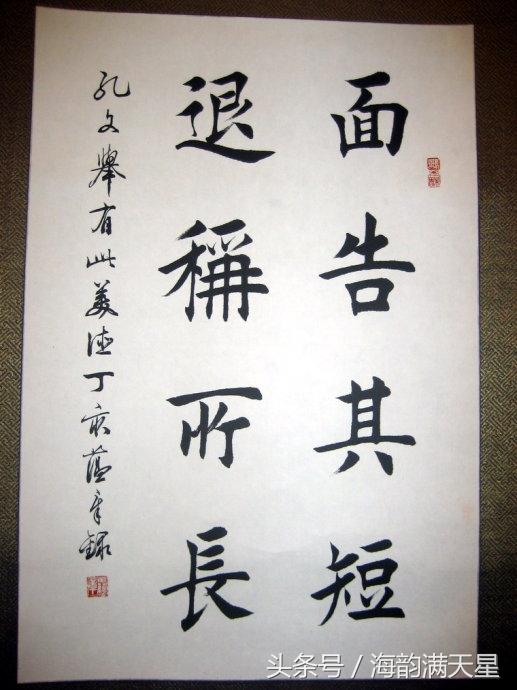 面告其短
退稱所長
孔文舉有此美德丁亥蕴章錄
头条号 / 海韵满天星